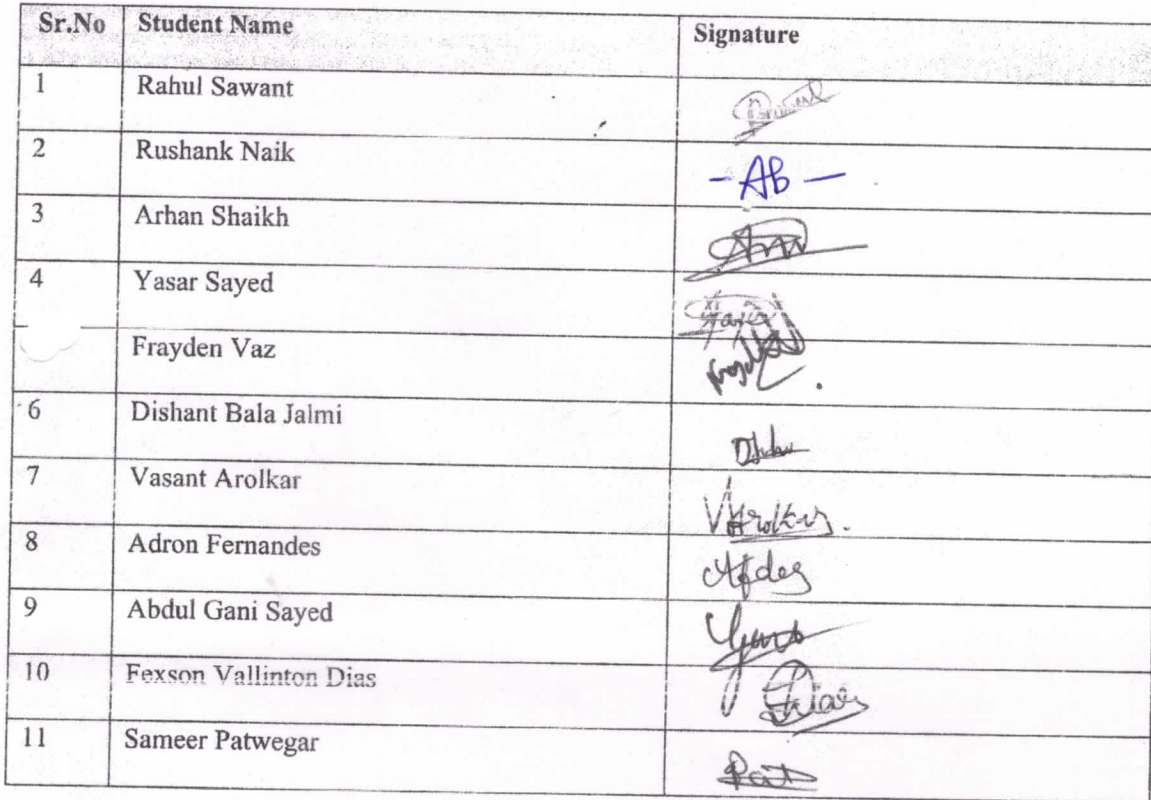 Sr.No Student Name Signature
1 Rahul Sawant
2 Rushank Naik - AB -
3 Arhan Shaikh
4 Yasar Sayed
Frayden Vaz
6 Dishant Bala Jalmi
7 Vasant Arolkar
8 Adron Fernandes
9 Abdul Gani Sayed
10 Fexson Vallinton Dias
11 Sameer Patwegar